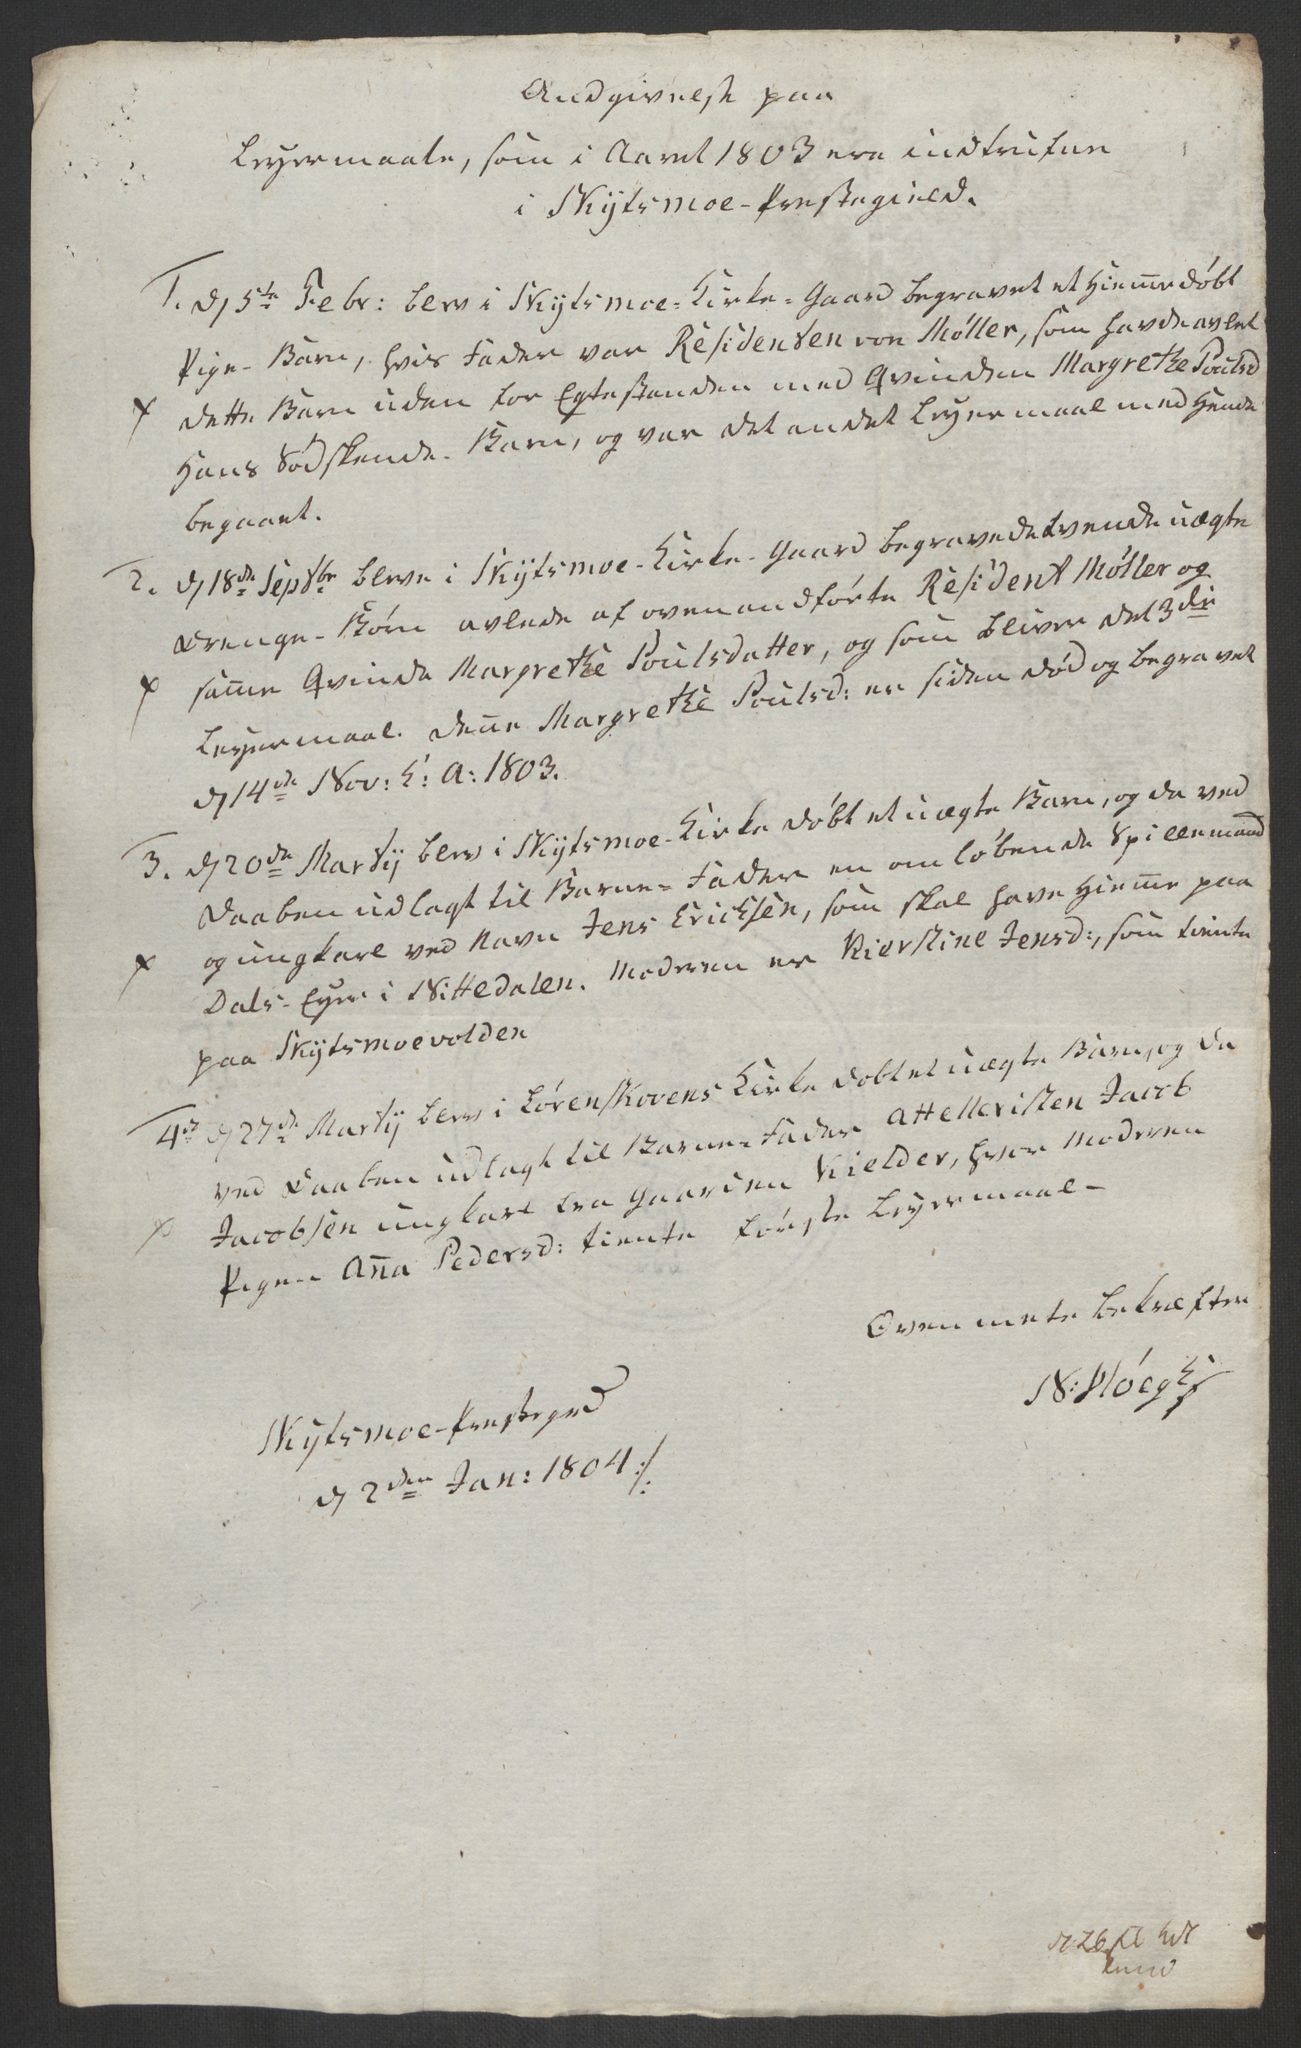 Andgivelse paa
Leyermaale, som i Aaret 1803 ere indtrufne
i Skytsmoe-Præstegield.
1. d 5te Febr: blev i Skytsmoe-Kirke-Gaard begravet et Hiem̄edøbt
Pige-Barn, hvis Fader var Residenten von Møller, som havde avlet
dette Barn uden for Egtestanden med Qvinden Margrethe Poulsd
Hans Sødskende-Barn, og var det andet Leyermaal med Hende
begaaet.
2. d 18de Septbr bleve i Skytsmoe-Kirke-Gaard begravede tvende uægte
Drenge-Børn avlede af ovenandførte Resident Møller og
sam̄e Qvinde Margrethe Poulsdatter, og som bliver det 3die
Leyermaal. Den̄e Margrethe Poulsd: er siden død og begravet
d 14de Nov: h: A: 1803.
3. d 20de Martij blev i Skytsmoe-Kirke døbt et uægte Barn, og da ved
Daaben udlagt til Barne-Fader en omløbende Spillemand
og ungkarl ved Navn Jens Ericksen, som skal have Hiem̄e paa
Dals-Eyer i Nittedalen. Moderen er Kierstine Jensd:, som tiente
paa Skytsmoevolden
4de d 27de Martij blev i Lørenskovens Kirke døbt et uægte Barn, og da
ved Daaben udlagt til Barne-Fader Attelleristen Jacob
Jacobsen ungkarl fra Gaarden Kielder, hvor Moderen
Pigen An̄a Pedersd: tiente første Leyermaal-
Ovenmelte bekræfter
N: Høegh
Skytsmoe-Præstegrd
d 2den Jan: 1804 ./.